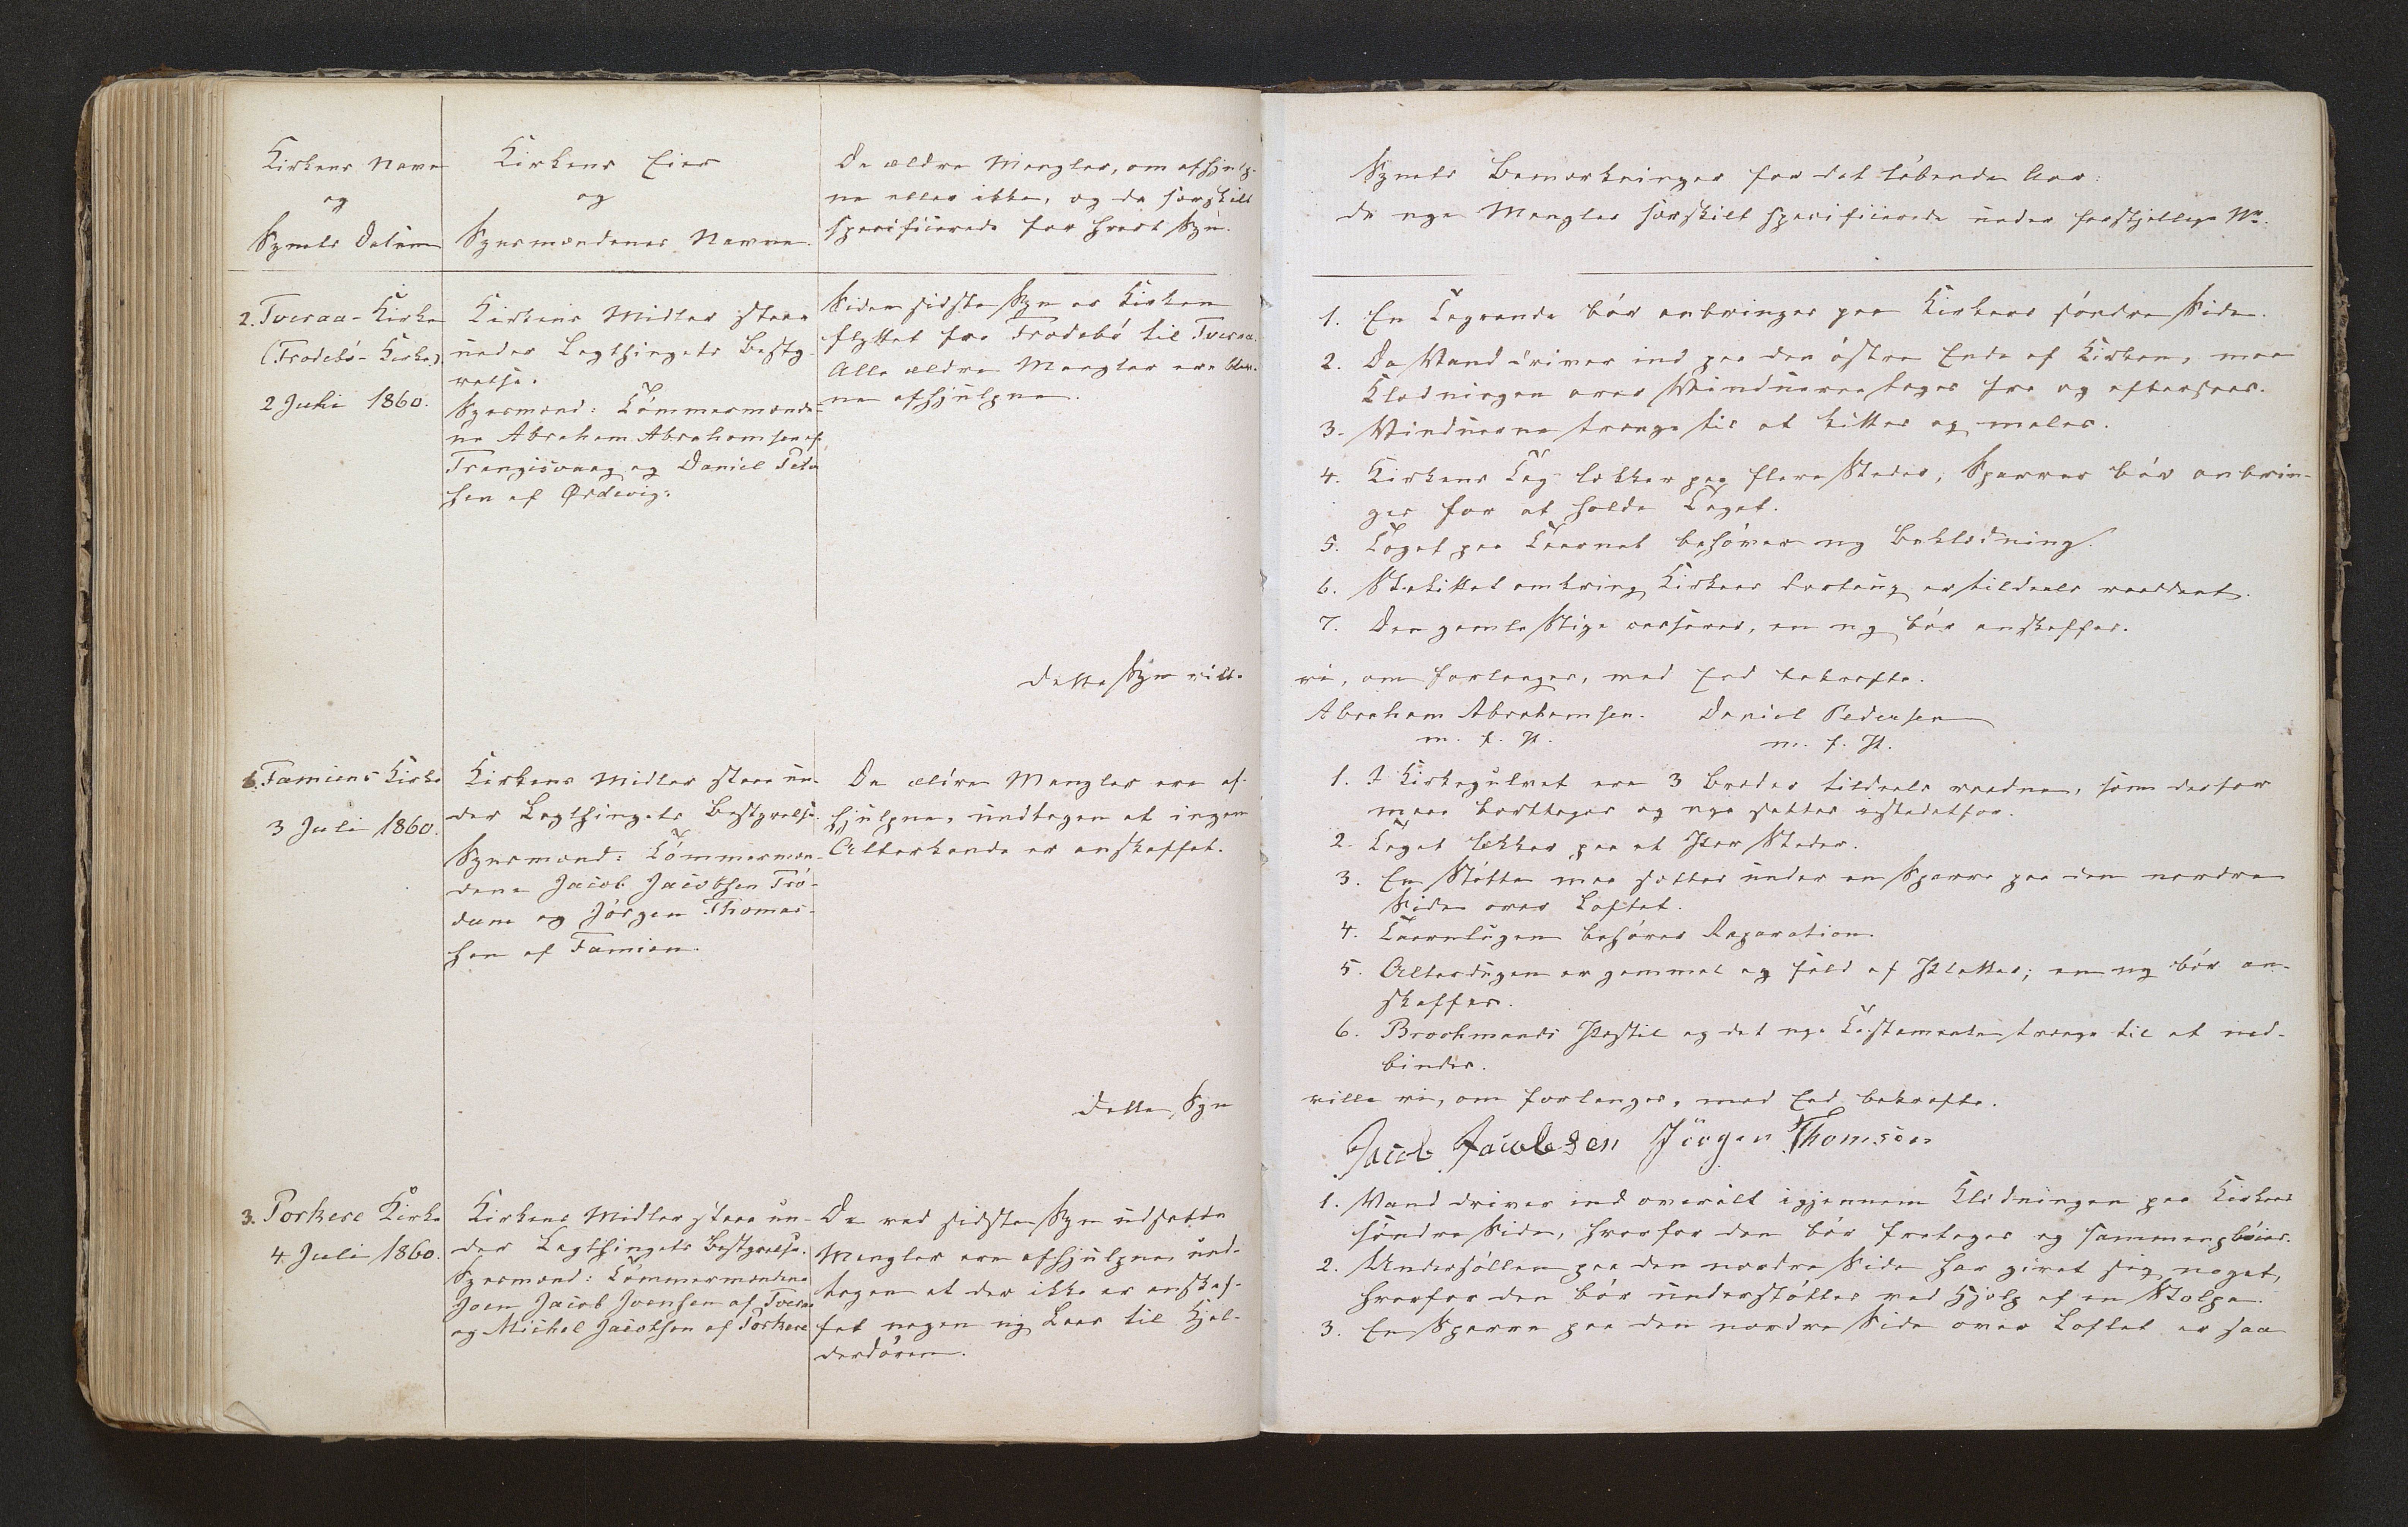 Kirkens Navn
og
Synets Datum
Kirkens Eier
og
Synsmændenes Navne.
De ældre Mangler, om afhjulp-
ne eller ikke, og da særskilt
specificerede for hvert Syn.
2. Tveraa-Kirke
(Frodebö-Kirke)
2 Juli 1860.
Kirkens Midler staae
under Lagthingets Besty-
relse.
Synsmænd: Tömmermænde-
ne Abraham Abrahamsen af
Trangisvaag og Daniel Peder
sen af Ørdevig.
Siden sidste Syn er Kirken
flyttet fra Frodebö til Tveraa.
Alle ældre Mangler ere blev-
ne afhjulpne.
Dette Syn ville
6. Famiens Kirke
3 Juli 1860.
Kirkens Midler staae un-
der Lagthingets Bestyrelse.
Synsmænd: Tömmermæn-
dene Jacob Jacobsen Trö-
dum og Jörgen Thomas-
sen af Famien.
De ældre Mangler ere af-
hjulpne, undtagen at ingen
Alterkande er anskaffet.
Dette Syn
3. Porkere Kirke
4 Juli 1860.
Kirkens Midler staae un-
der Lagthingets Bestyrelse.
Synsmænd: Tömmermændene
Joen Jacob Joensen af Tveraa
og Michel Jacobsen af Porkere
De ved sidste Syn udsatte
Mangler ere afhjulpne und-
tagen at der ikke er anskaf-
fet nogen ny Laas til Hjal-
derdören.
Synets Bemærkninger for det löbende Aar:
de nye Mangler særskilt specificerede under forskjellige No.
1. En Tagrende bör anbringes paa Kirkens söndre Side.
2. Da Vand driver ind paa den östre Ende af Kirken, maa
Klædningen over Vinduerne tages fra og eftersees.
3. Vinduerne trænge til at kittes og males.
4. Kirkens Tag lækker paa flere Steder, Sparrer bör anbrin-
ges for at holde Taget.
5. Taget paa Taarnet behöver ny Beklædning.
6. Stakittet omkring Kirkens Fortoug er tildeels raaddent.
7. Den gamle Stige casseres, en ny bör anskaffes.
vi, om forlanges, med Eed bekræfte.
Abraham Abrahamsen. Daniel Pedersen
m. f. P. m. f. P.
1. I Kirkegulvet ere 3 Bræder tildeels raadne, som derfor
maae borttages og nye sættes istedetfor.
2. Taget lækker paa et Par Steder.
3. En Stötte maa sættes under en Sparre paa den nordre
Side over Loftet.
4. Taarnlugen behöver Reparation.
5. Alterdugen er gammel og fuld af Pletter; en ny bör an-
skaffes.
6. Brochmands Postil og det nye Testamente trænge til at ind-
bindes.
ville vi, om forlanges, med Eed bekræfte.
Jacob Jacobsen Jörgen Thomsen
1. Vand driver ind overalt igjennem Klædningen paa Kirkens
söndre Side, hvorfor den bör fratages og sammenplöies.
2. Undersöllen paa den nordre Side har givet sig noget,
hvorfor den bör understöttes ved Hjelp af en Stolpe.
3. En Sparre paa den nordre Side over Loftet er saa